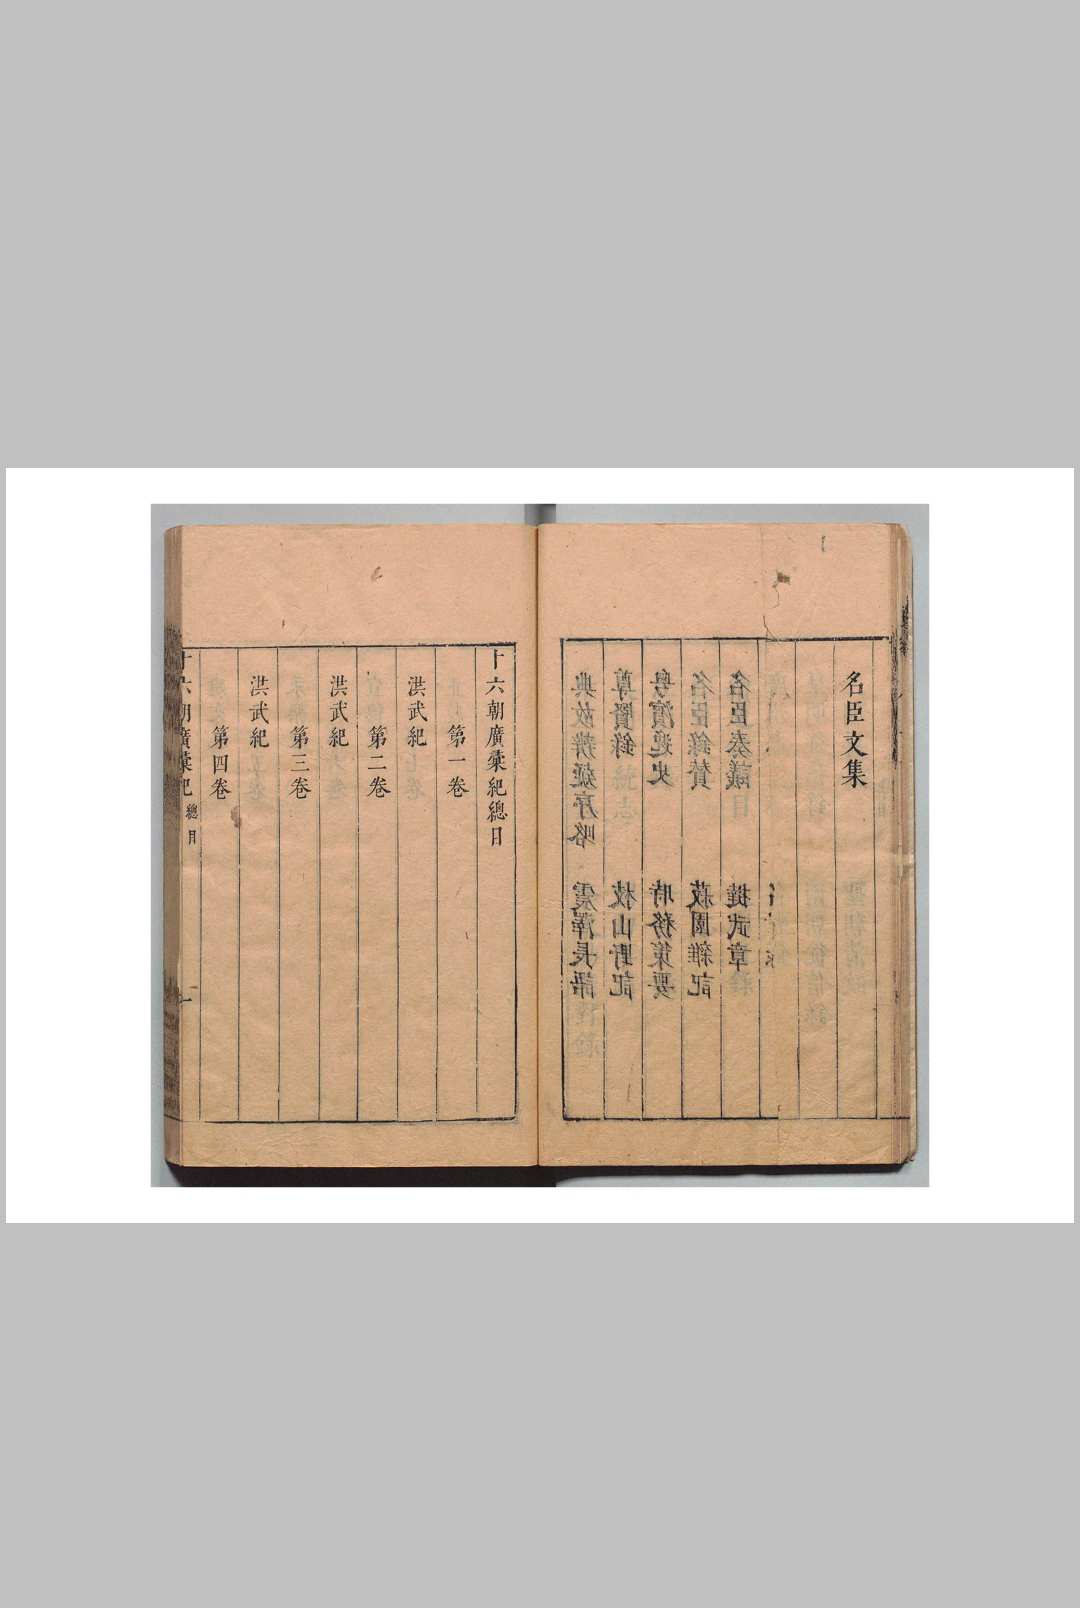 名臣文集
名臣奏議
名臣錄贊 菽園雜記
粵濱逸史 時務策要
尊賢錄 枝山野記
典故辨疑序略 震澤長語
十六朝廣彙紀總目
第一卷
洪武紀
第二卷
洪武紀
第三卷
洪武紀
第四卷
十六朝廣彙紀 總目 一